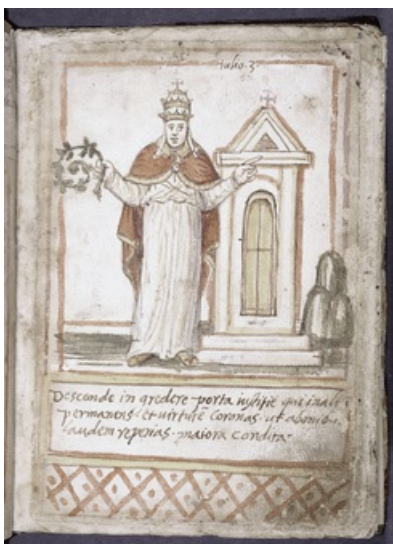 iulio · 3 ·
Descende in gredere porta iustitie que inalt
permanens et virtutē Coronas · ut abonis
laudem reperias · maiora Condita ·